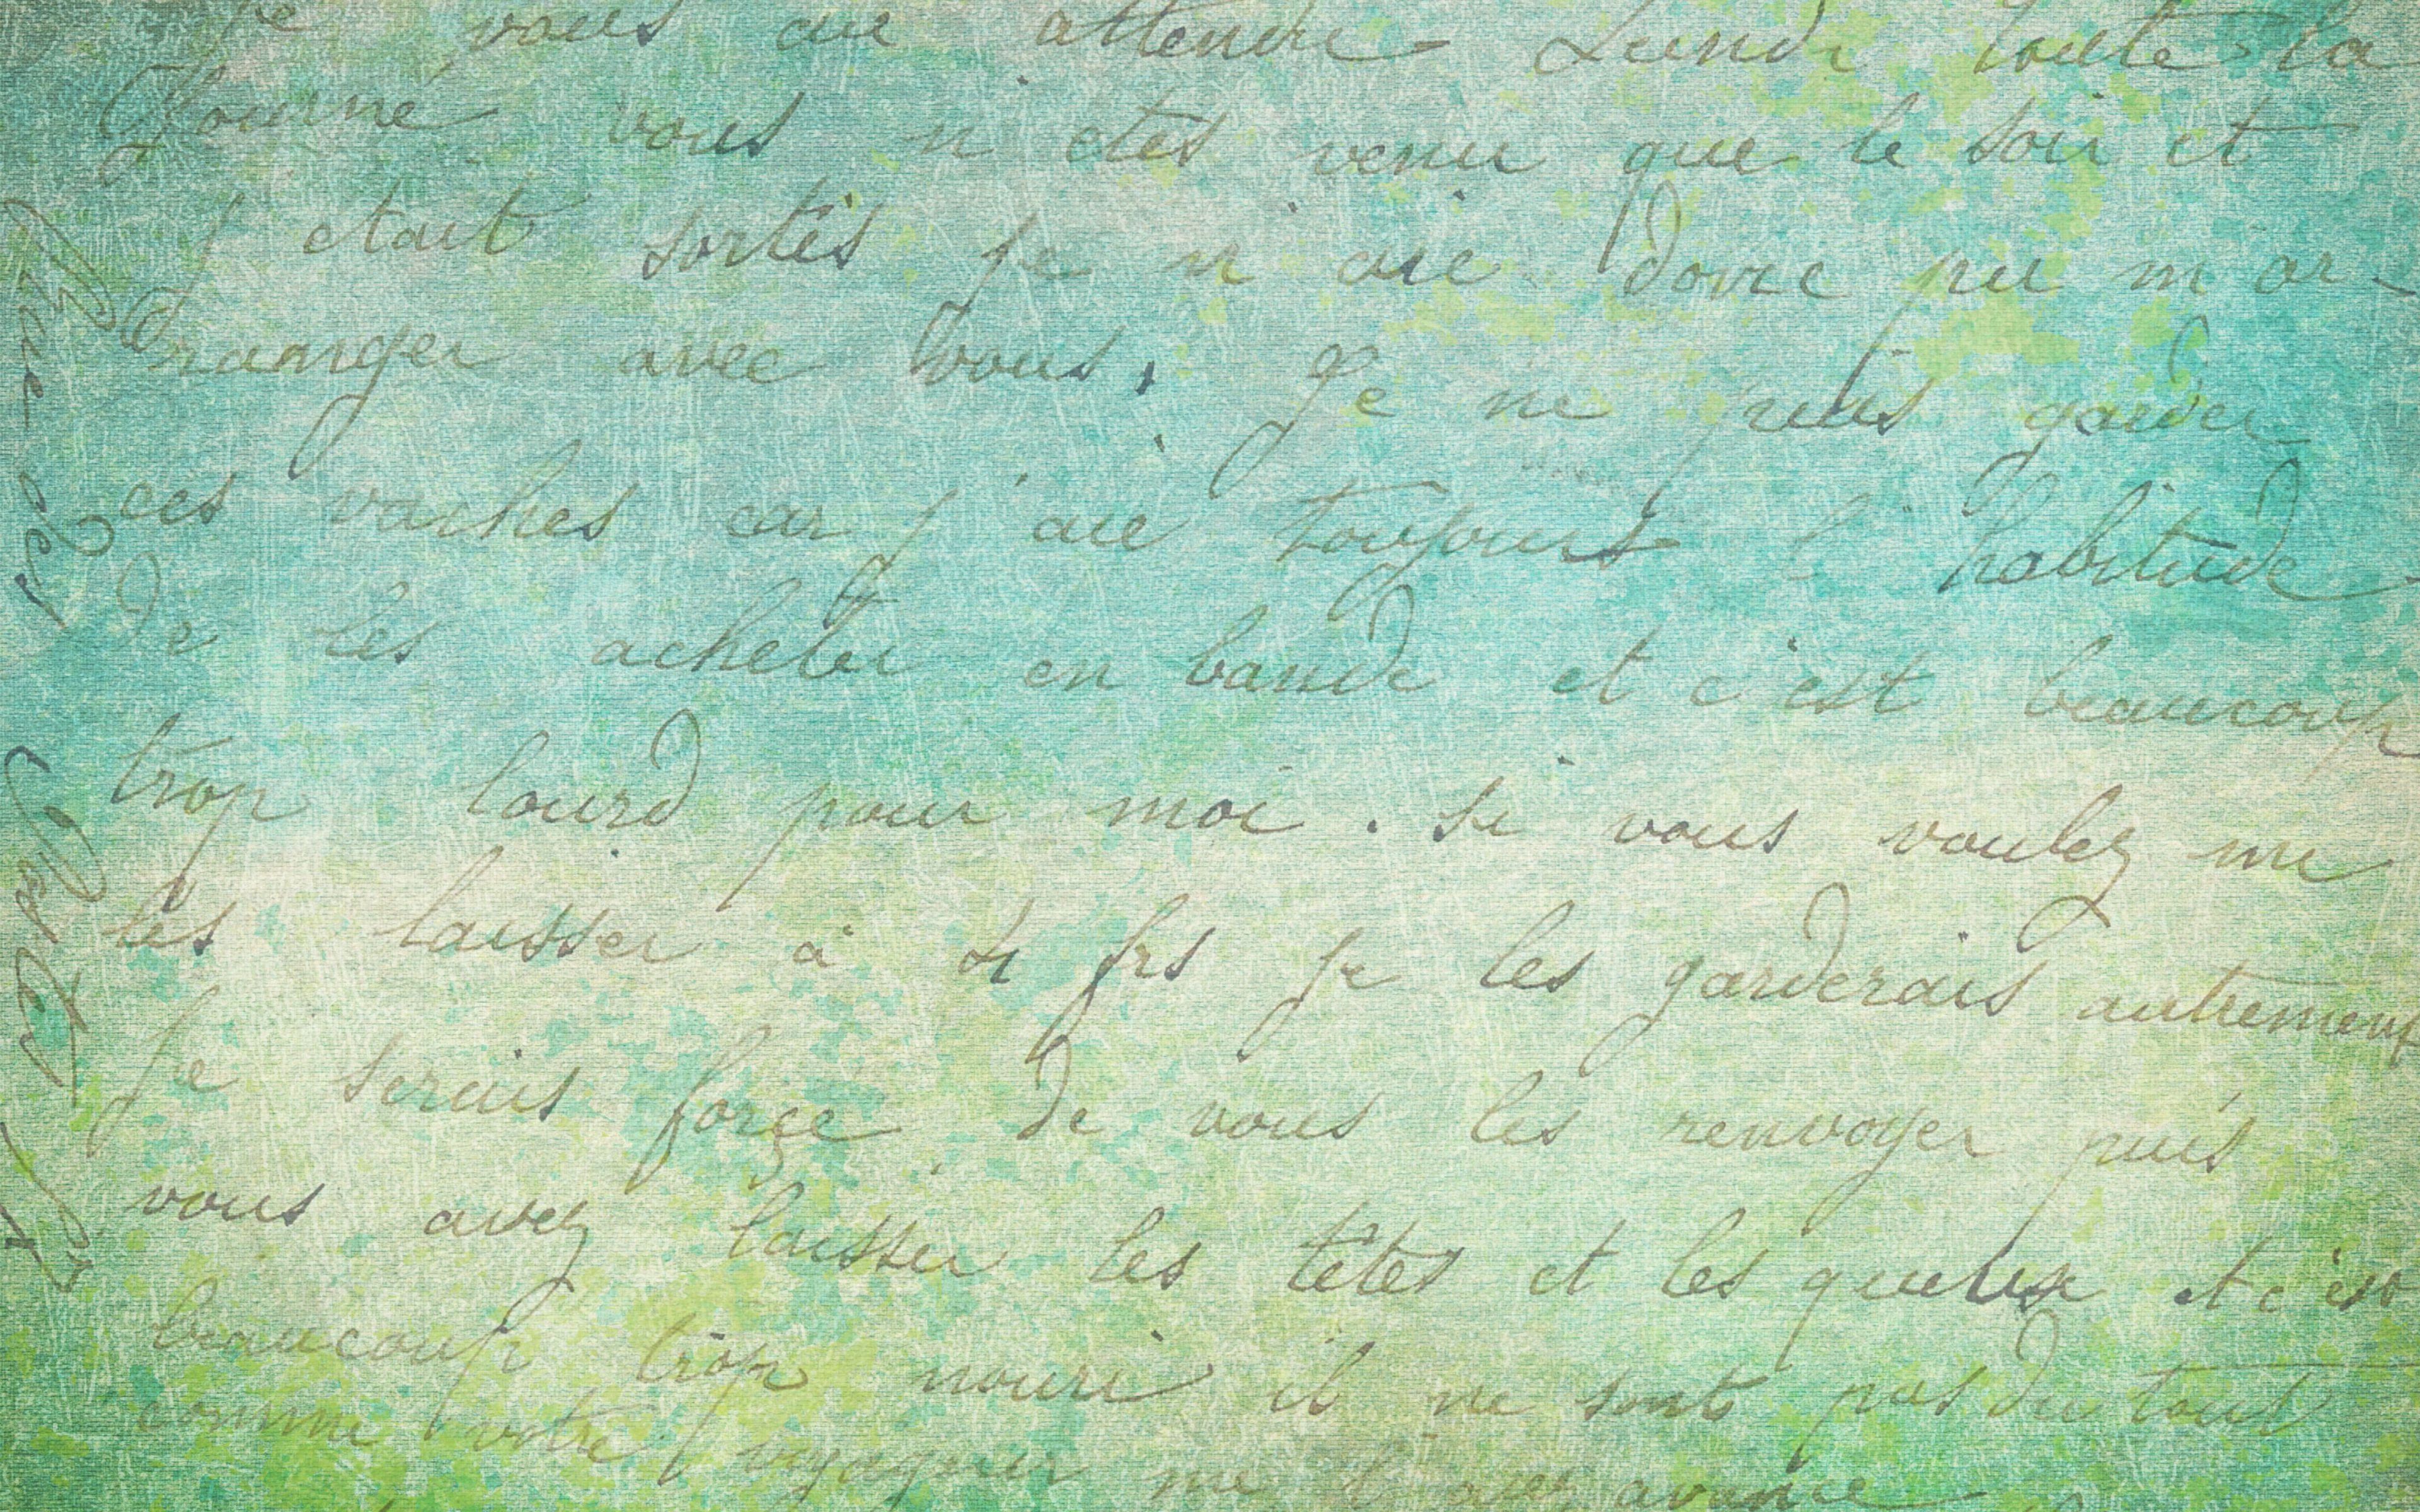 Je vous aie attendu Lundi toute la
Journé vous n'etes venu que le soir et
j'etait sortis je n'aie donc pu m'ar-
ranger avec vous, Je ne puis garder
ces vaches car j'aie toujours l'habitude
de les acheter en bande et c'est beaucoup
trop lourd pour moi. Si vous voulez me
les laisser à frs je les garderais autrement
je serais forçé de vous les renvoyer puis
vous avez laisser les tetes et les queux et c'est
beaucoup trop nouri il ne sont pas du tout
comme votre voyageur me l'avez avancé
Rue des
Postes